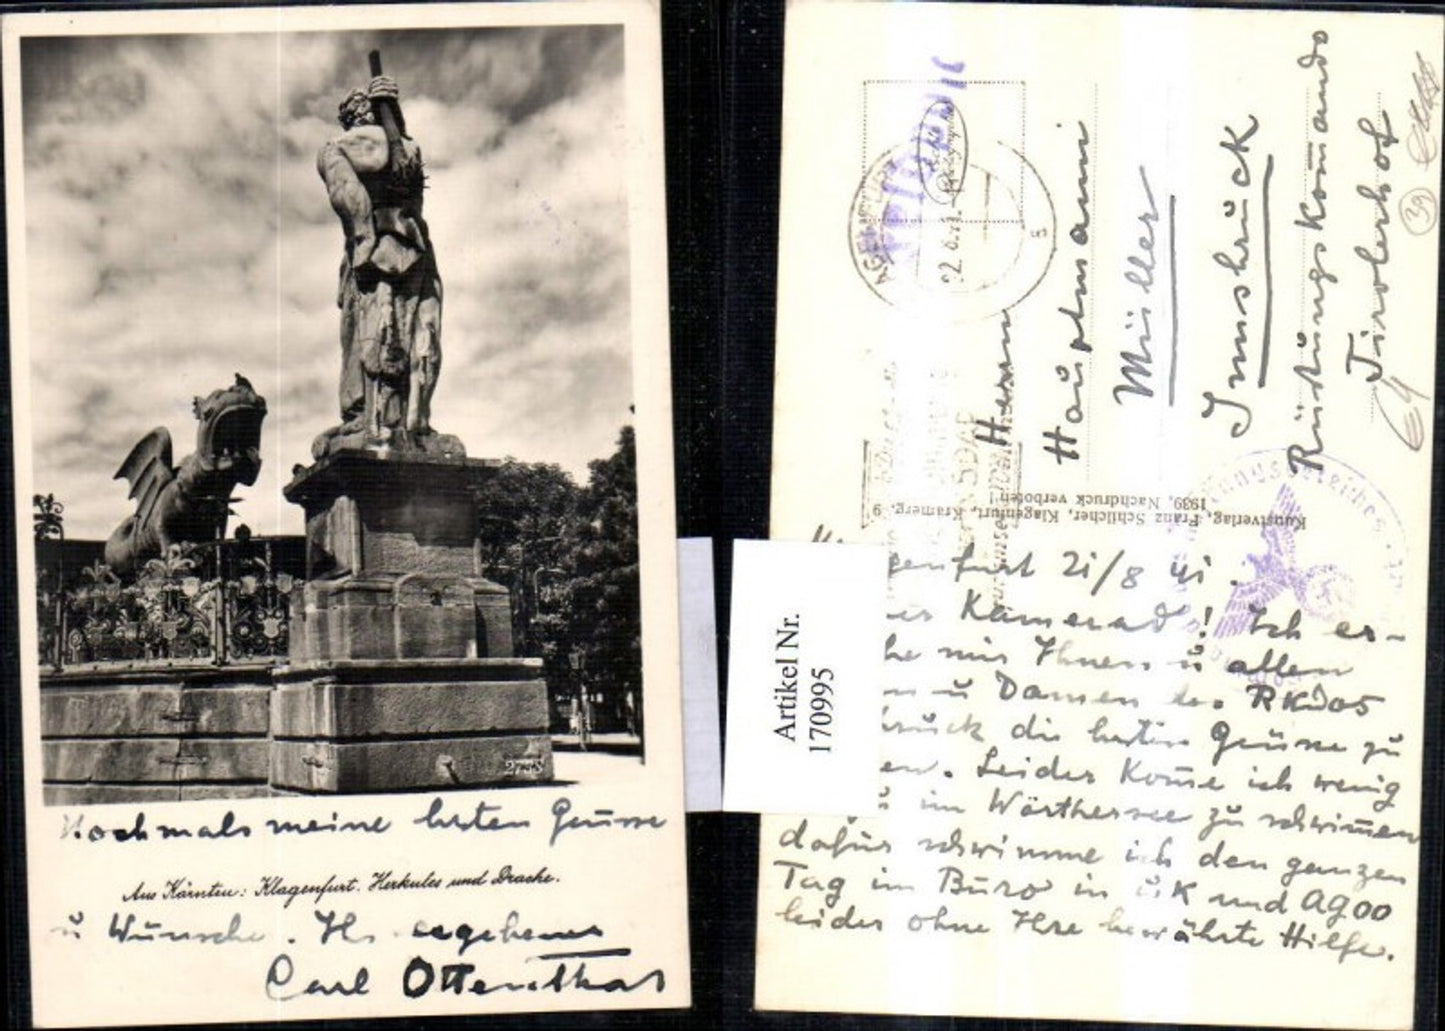 Nochmals meine besten Grüsse
Aus Kärnten: Klagenfurt. Herkules und Drache.
u Wünsche. Ihr ergebener
Carl Ottenthal
Artikel Nr.
170995
Herrn
Hauptmann
Müller
Innsbruck
Rüstungskomando
Tirolerhof
39
Kunstverlag, Franz Schilcher, Klagenfurt, Kramerg. 9
1939, Nachdruck verboten!
genfurt 21/8 41.
Kamerad! Ich er-
he mir Ihnen u allen
n u Damen des RKdos
bruck die besten Grüsse zu
en. Leider kome ich wenig
im Wörthersee zu schwimen
dafür schwimme ich den ganzen
Tag im Büro in ük und AGOO
leider ohne Ihre bewährte Hilfe.